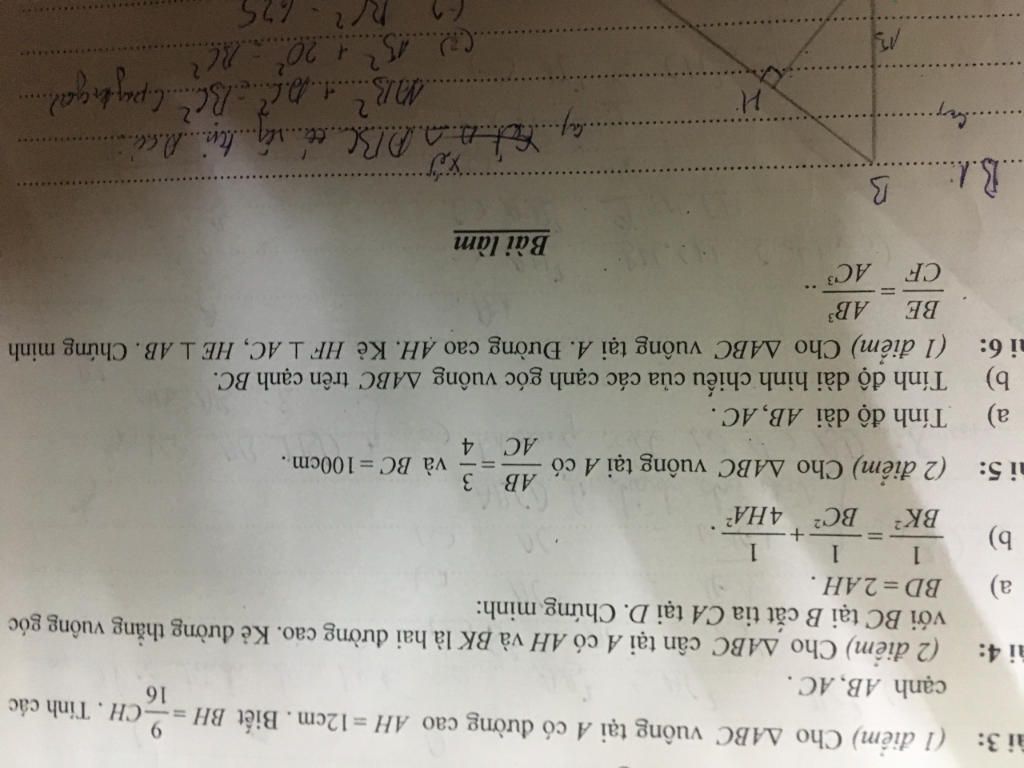 ài 3: (1 điểm) Cho ΔABC vuông tại A có đường cao AH = 12cm. Biết BH = 9/16 CH. Tính các
cạnh AB, AC.
ài 4: (2 điểm) Cho ΔABC cân tại A có AH và BK là hai đường cao. Kẻ đường thẳng vuông góc
với BC tại B cắt tia CA tại D. Chứng minh:
a) BD = 2AH.
b) 1/BK² = 1/BC² + 1/4HA².
ài 5: (2 điểm) Cho ΔABC vuông tại A có AB/AC = 3/4 và BC = 100cm.
a) Tính độ dài AB, AC.
b) Tính độ dài hình chiếu của các cạnh góc vuông ΔABC trên cạnh BC.
ài 6: (1 điểm) Cho ΔABC vuông tại A. Đường cao AH. Kẻ HF ⊥ AC, HE ⊥ AB. Chứng minh
BE/CF = AB³/AC³ ..
Bài làm
B1:
B
H
15
(=) AB² + 20² = BC²
(=) BC² = 625